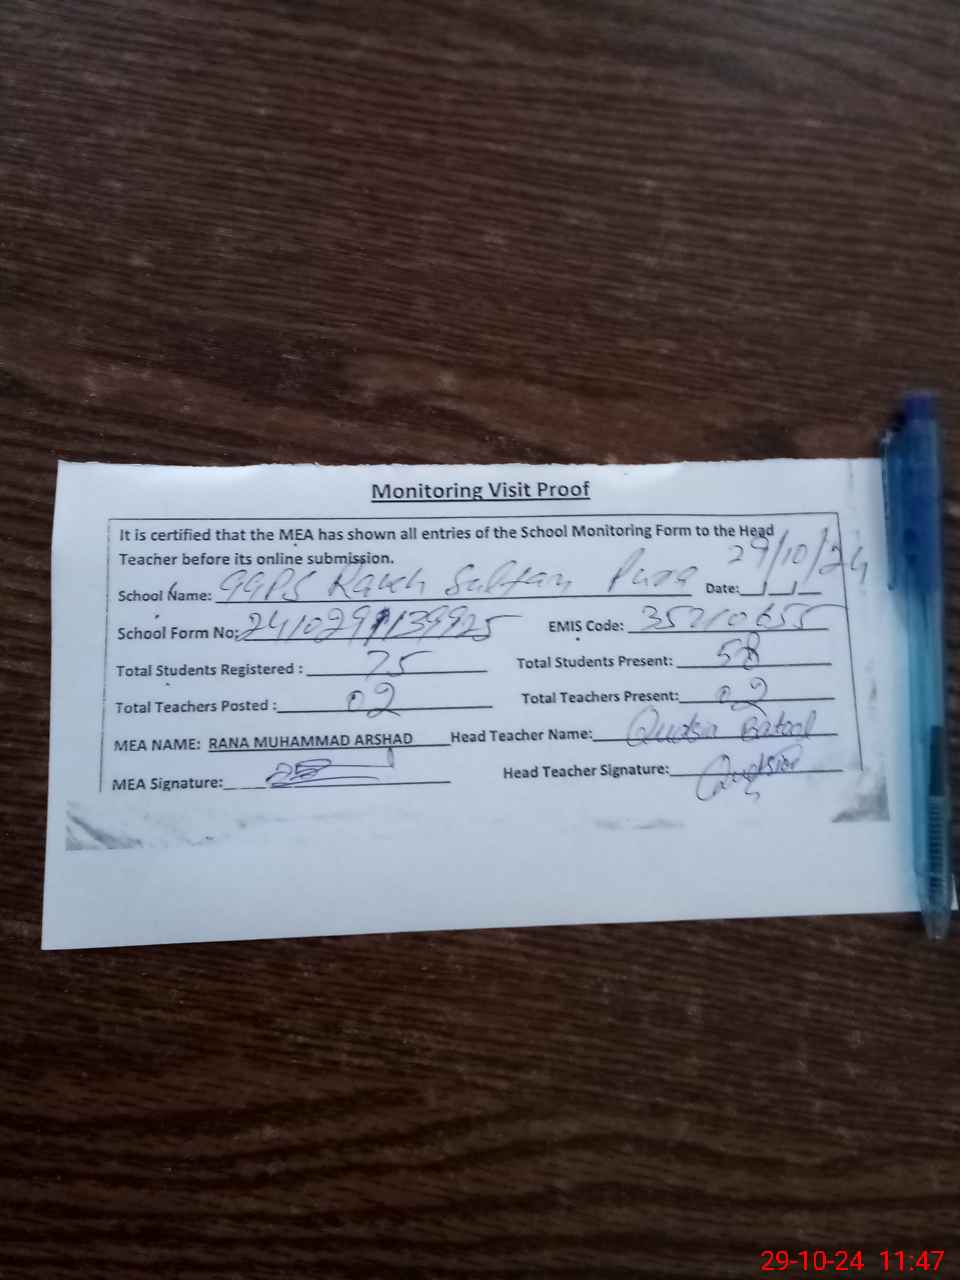 Monitoring Visit Proof
It is certified that the MEA has shown all entries of the School Monitoring Form to the Head
Teacher before its online submission.
School Name: GGPS Rakh Sultan Pura Date: 29/10/24
School Form No: EMIS Code: 35210655
Total Students Registered : 75 Total Students Present: 58
Total Teachers Posted : 02 Total Teachers Present: 02
MEA NAME: RANA MUHAMMAD ARSHAD Head Teacher Name: Qudsia Batool
MEA Signature: Head Teacher Signature: Qudsia
29-10-24 11:47